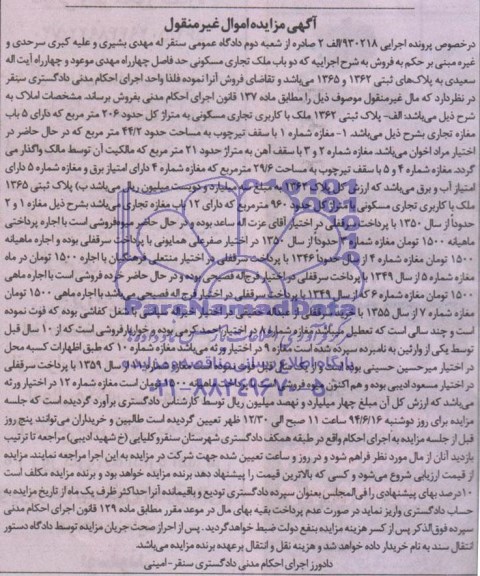 آگهی مزایده اموال غیر منقول
درخصوص پرونده اجرایی ۹۳۰۲۱۸/الف ۲ صادره از شعبه دوم دادگاه عمومی سنقر له مهدی بشیری و علیه کبری سرحدی و
غیره مبنی بر حکم به فروش به شرح اجراییه که دو باب ملک تجاری مسکونی حد فاصل چهارراه مهدی موعود و چهارراه آیت اله
سعیدی به پلاک‌های ثبتی ۱۳۶۲ و ۱۳۶۵ می‌باشد و تقاضای فروش آنرا نموده فلذا واحد اجرای احکام مدنی دادگستری سنقر
در نظر دارد که مال غیرمنقول موصوف ذیل را مطابق ماده ۱۳۷ قانون اجرای احکام مدنی بفروش برساند. مشخصات املاک به
شرح ذیل می‌باشد: الف- پلاک ثبتی ۱۳۶۲ ملک با کاربری تجاری مسکونی به متراژ کل حدود ۲۰۶ متر مربع که دارای ۵ باب
مغازه تجاری بشرح ذیل می‌باشد. ۱- مغازه شماره ۱ با سقف تیرچوب به مساحت حدود ۴۴/۲ متر مربع که در حال حاضر در
اختیار مراد اخوان می‌باشد. مغازه شماره ۲ و ۳ با سقف آهن به متراژ حدود ۲۱ متر مربع که مالکیت آن توسط مالک واگذار می
گردد. مغازه شماره ۴ و ۵ با سقف تیرچوب به مساحت ۲۹/۶ مترمربع که مغازه شماره ۴ دارای امتیاز برق و مغازه شماره ۵ دارای
امتیاز آب و برق می‌باشد که ارزش کل پلاک ۱۳۶۲ مبلغ میلیارد و دویست میلیون ریال می‌باشد ب) پلاک ثبتی ۱۳۶۵
ملک با کاربری تجاری مسکونی با متراژ کل حدود ۹۶۰ مترمربع که دارای ۱۲ باب مغازه تجاری می‌باشد بشرح ذیل مغازه ۱ و ۲
حدوداً از سال ۱۳۵۰ با پرداخت سرقفلی در اختیار آقای عزت اله ساعد بوده و در حال حاضر میوه‌فروشی است با اجاره پرداختی
ماهیانه ۱۵۰۰ تومان مغازه شماره ۳ حدوداً از سال ۱۳۵۰ در اختیار صفرعلی همایونی با پرداخت سرقفلی بوده و اجاره ماهیانه
۱۵۰۰ تومان مغازه شماره ۴ از حدوداً ۱۳۴۶ با پرداخت سرقفلی در اختیار فرهنگیان با اجاره ۱۵۰۰ تومان در ماه
مغازه شماره ۵ از سال ۱۳۴۹ با پرداخت سرقفلی در اختیار فرج‌اله فصیحی بوده و در حال حاضر خرده فروشی است با اجاره ماهی
۱۵۰۰ تومان مغازه شماره ۶ که از سال ۱۳۴۹ با پرداخت سرقفلی در اختیار فرج‌اله فصیحی می‌باشد با اجاره ماهی ۱۵۰۰ تومان
مغازه شماره ۷ از سال ۱۳۵۵ با شغل کفاشی بوده که فوت نموده
است و چند سالی است که تعطیل میباشد مغازه شماره ۸ در اختیار احمد کرمی بوده و خواربارفروشی است که از ۱۰ سال قبل
توسط یکی از وارثین به نامبرده سپرده شده است مغازه ۹ در اختیار ورثه می‌باشد مغازه شماره ۱۰ که طبق اظهارات کسبه محل
در اختیار میرحسین حسینی بوده سال ۱۳۵۹ با پرداخت سرقفلی
در اختیار مسعود ادیبی بوده و هم اکنون میوه‌فروشی ۱۵۰۰ تومان است مغازه شماره ۱۲ در اختیار ورثه
می‌باشد که ارزش کل آن مبلغ چهار میلیارد و نهصد میلیون ریال توسط کارشناس دادگستری برآورد گردیده است که جلسه
مزایده برای روز دوشنبه ۹۴/۶/۱۶ ساعت ۱۱ صبح الی ۱۲/۳۰ ظهر تعیین گردیده است طالبین و خریداران می‌توانند پنج روز
قبل از جلسه مزایده به اجرای احکام واقع در طبقه همکف دادگستری شهرستان سنقروکلیایی (خ شهید ادیبی) مراجعه تا ترتیب
بازدید آنان از مال مورد نظر فراهم شود و در روز و ساعت تعیین شده جهت شرکت در مزایده به این اجرا مراجعه نمایند. مزایده
از قیمت ارزیابی شروع می‌شود و کسی که بالاترین قیمت را پیشنهاد دهد برنده مزایده خواهد بود و برنده مزایده مکلف است
۱۰درصد بهای پیشنهادی را فی‌المجلس بعنوان سپرده دادگستری تودیع و باقیمانده آنرا حداکثر ظرف یک ماه از تاریخ مزایده به
حساب دادگستری واریز نماید در صورت عدم پرداخت بقیه بهای مال در موعد مقرر مطابق ماده ۱۲۹ قانون اجرای احکام مدنی
سپرده فوق‌الذکر پس از کسر هزینه مزایده بنفع دولت ضبط خواهد گردید. پس از احراز صحت جریان مزایده توسط دادگاه دستور
انتقال سند به نام خریدار داده خواهد شد و هزینه نقل و انتقال برعهده برنده مزایده می‌باشد.
دادورز اجرای احکام مدنی دادگستری سنقر- امینی
ParsNamadData
پایگاه اطلاع رسانی مناقصه و مزایده